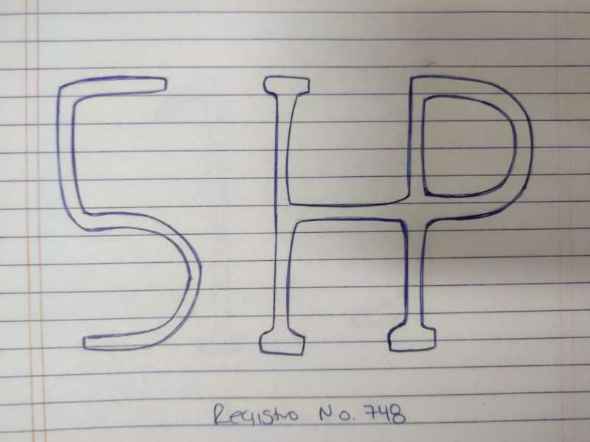 SHP
Registro No. 748